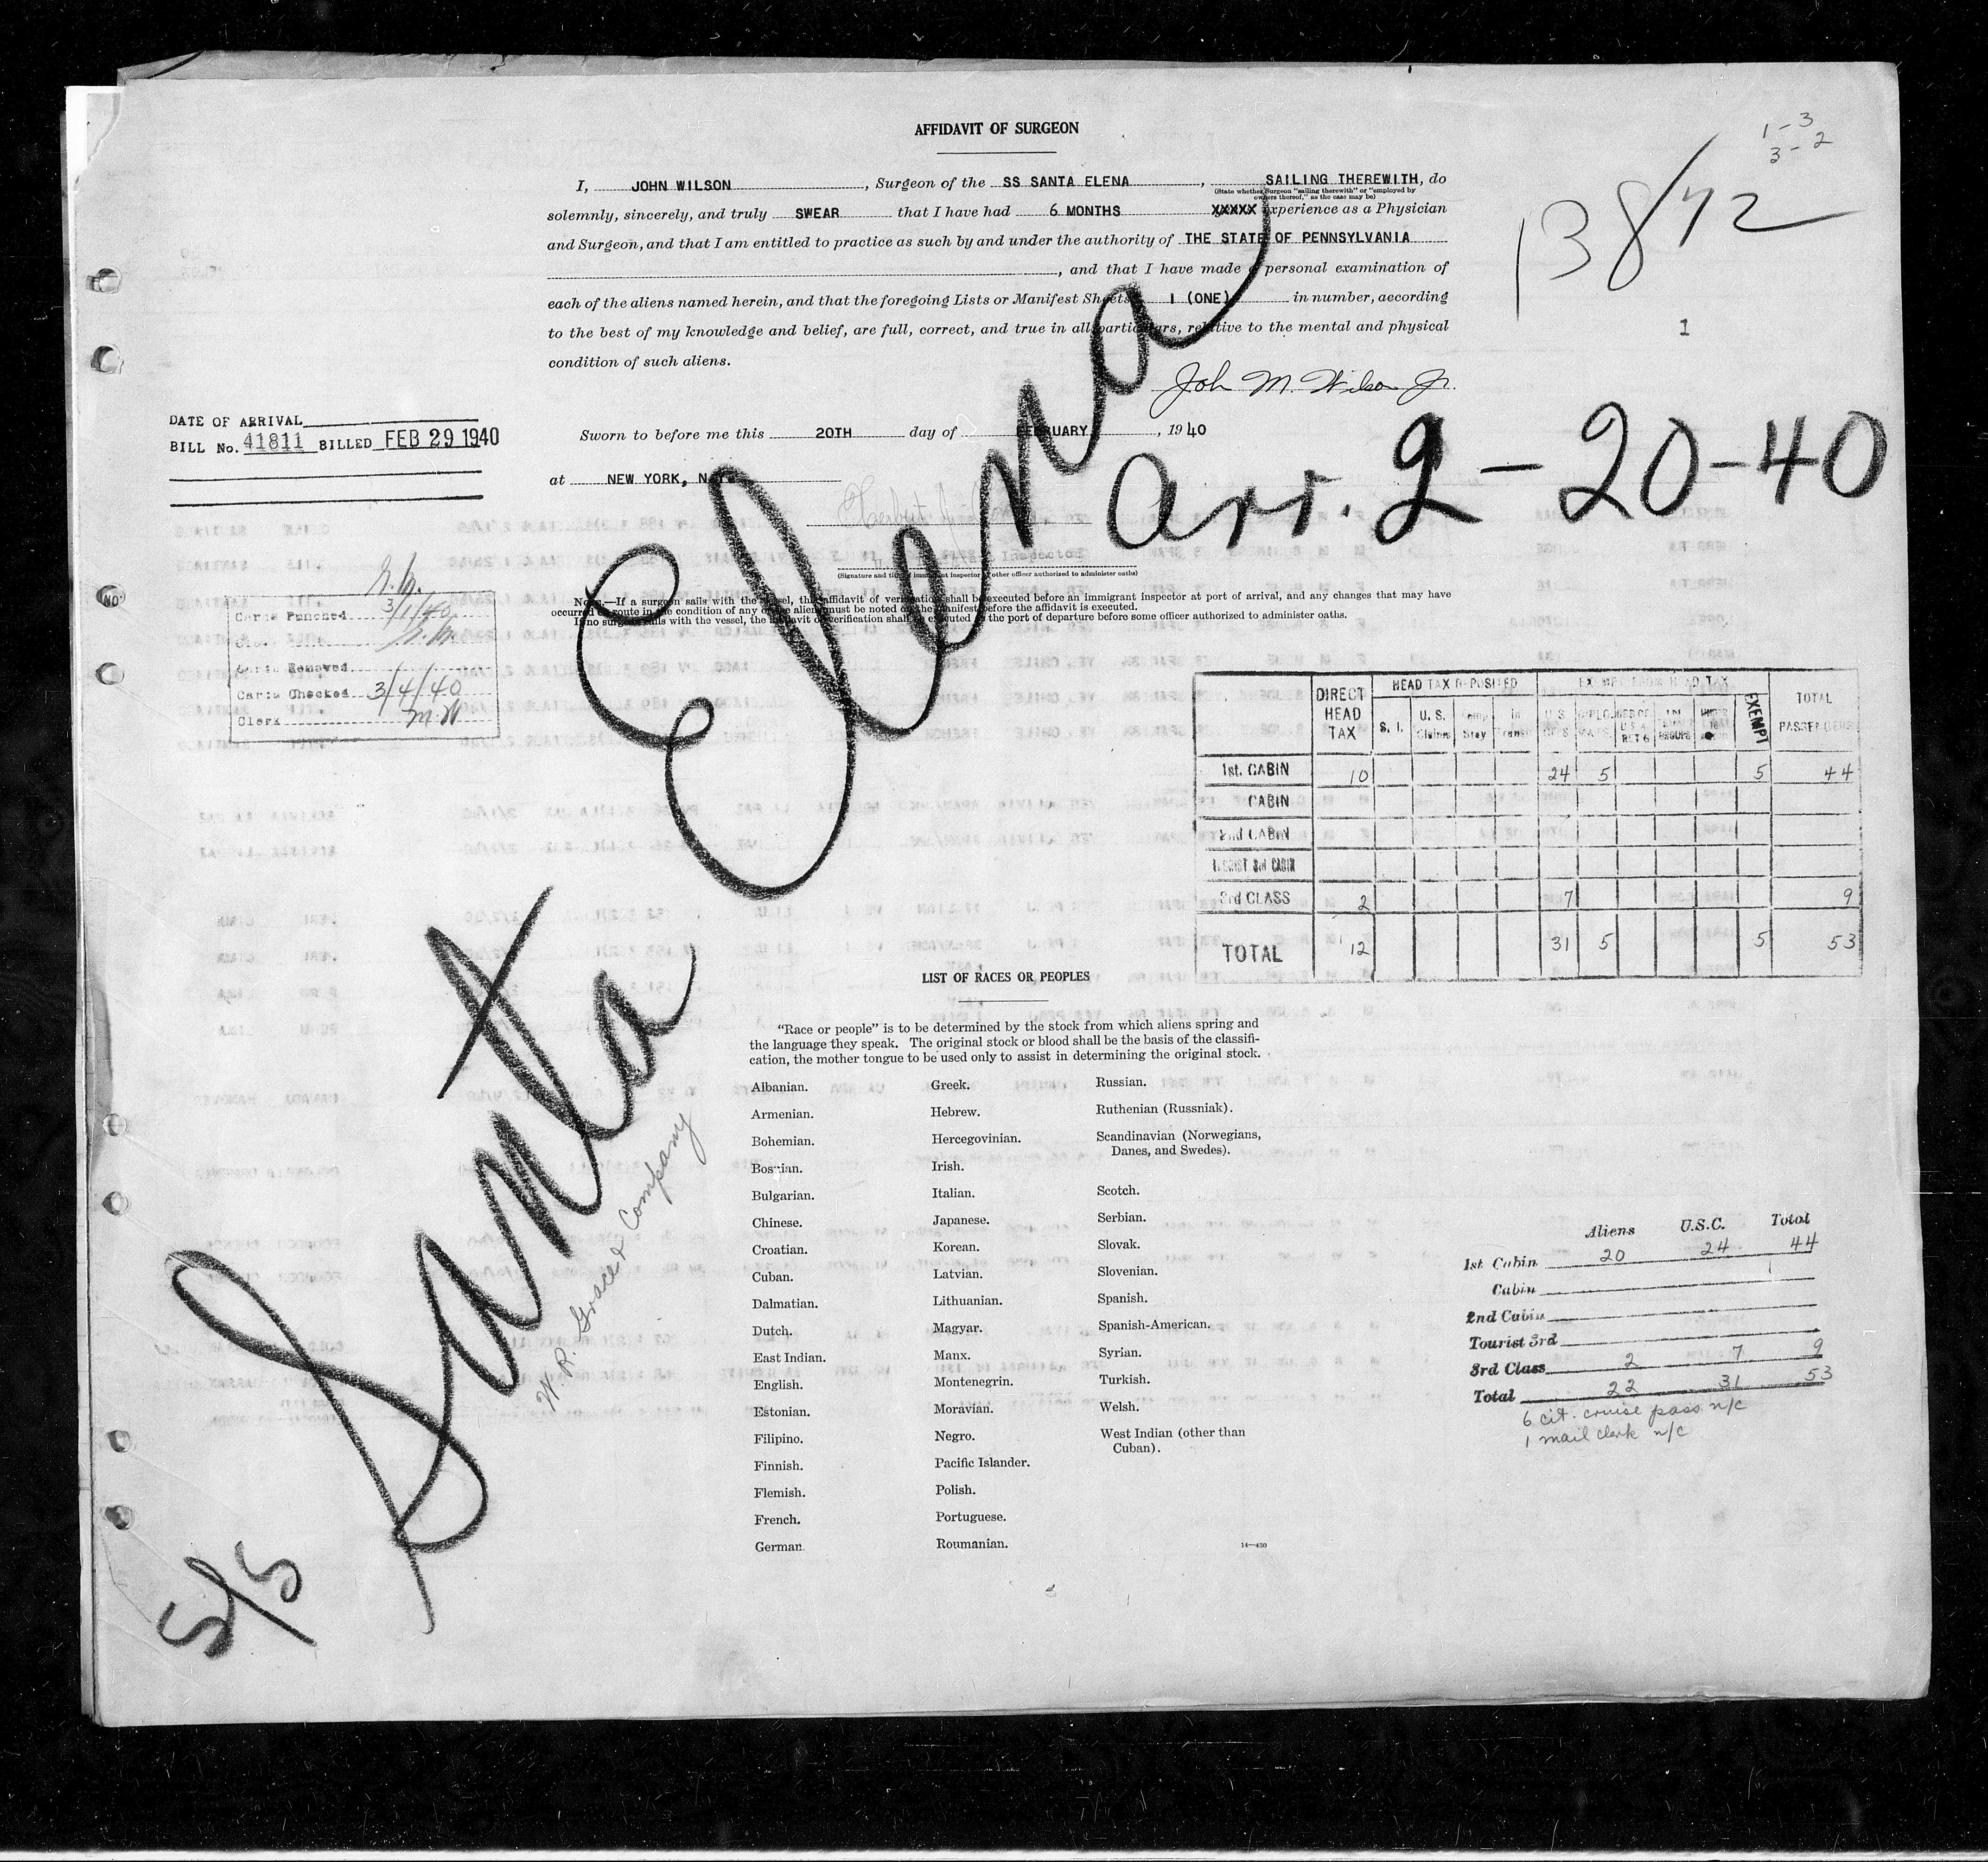 AFFIDAVIT OF SURGEON
1-3
3-2
13872
1
I, JOHN WILSON, Surgeon of the SS SANTA ELENA, SAILING THEREWITH, do
(State whether Surgeon "sailing therewith" or "employed by
owners thereof," as the case may be)
solemnly, sincerely, and truly SWEAR that I have had 6 MONTHS XXXXX experience as a Physician
and Surgeon, and that I am entitled to practice as such by and under the authority of THE STATE OF PENNSYLVANIA
, and that I have made a personal examination of
each of the aliens named herein, and that the foregoing Lists or Manifest Sheets 1 (ONE) in number, according
to the best of my knowledge and belief, are full, correct, and true in all particulars, relative to the mental and physical
condition of such aliens.
John M. Wilson Jr.
DATE OF ARRIVAL
BILL No. 41811 BILLED FEB 29 1940
Sworn to before me this 20TH day of FEBRUARY, 1940
at NEW YORK, N.Y.
Arr. 2-20-40
Inspector
(Signature and title of immigrant inspector or other officer authorized to administer oaths)
NOTE.—If a surgeon sails with the vessel, the affidavit of verification shall be executed before an immigrant inspector at port of arrival, and any changes that may have
occurred en route in the condition of any of the aliens must be noted on the manifest before the affidavit is executed.
If no surgeon sails with the vessel, the affidavit of verification shall be executed at the port of departure before some officer authorized to administer oaths.
NO.
Cards Punched 3/1/40
Cards Removed
Cards Checked 3/4/40
Clerk M.W
Santa Elena
W. R. Grace & Company
5/5
DIRECT HEAD TAX HEAD TAX DEPOSITED EXEMPT FROM HEAD TAX EXEMPT TOTAL PASSENGERS
S. I. U. S. Claims Temp Stay In Transit U S CITS
1st. CABIN 10 24 5 5 44
CABIN
2nd CABIN
TOURIST 3rd CABIN
3rd CLASS 2 7 9
TOTAL 12 31 5 5 53
LIST OF RACES OR PEOPLES
"Race or people" is to be determined by the stock from which aliens spring and
the language they speak. The original stock or blood shall be the basis of the classifi-
cation, the mother tongue to be used only to assist in determining the original stock.
Albanian.
Armenian.
Bohemian.
Bosnian.
Bulgarian.
Chinese.
Croatian.
Cuban.
Dalmatian.
Dutch.
East Indian.
English.
Estonian.
Filipino.
Finnish.
Flemish.
French.
German.
Greek.
Hebrew.
Hercegovinian.
Irish.
Italian.
Japanese.
Korean.
Latvian.
Lithuanian.
Magyar.
Manx.
Montenegrin.
Moravian.
Negro.
Pacific Islander.
Polish.
Portuguese.
Roumanian.
Russian.
Ruthenian (Russniak).
Scandinavian (Norwegians,
Danes, and Swedes).
Scotch.
Serbian.
Slovak.
Slovenian.
Spanish.
Spanish-American.
Syrian.
Turkish.
Welsh.
West Indian (other than
Cuban).
14—430
Aliens U.S.C. Total
1st Cabin 20 24 44
Cabin
2nd Cabin
Tourist 3rd
3rd Class 2 7 9
Total 22 31 53
6 cit. cruise pass n/c
1 mail clerk n/c